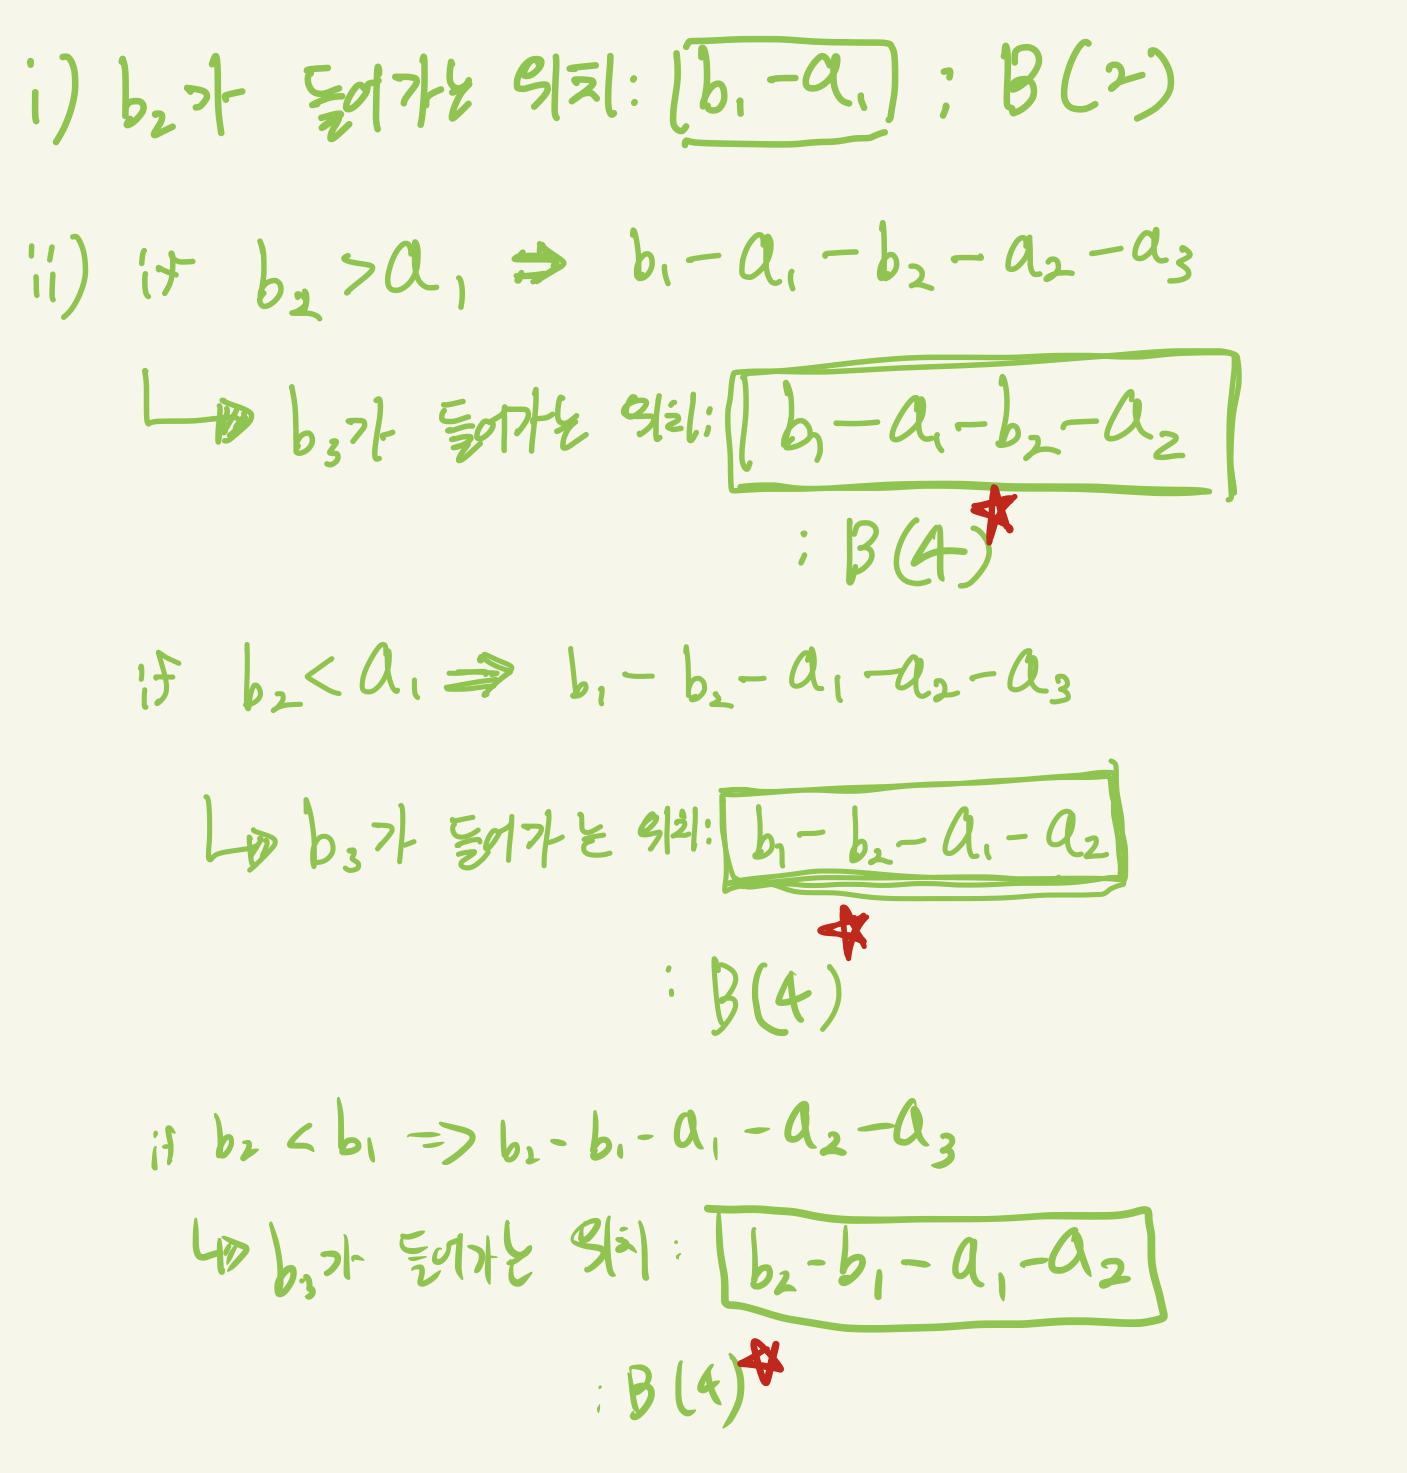 i) b₂가 들어가는 위치: [b₁-a₁] ; B(2)
ii) if b₂>a₁ ⇒ b₁-a₁-b₂-a₂-a₃
↳ b₃가 들어가는 위치: [b₁-a₁-b₂-a₂
: B(4)
if b₂<a₁ ⇒ b₁-b₂-a₁-a₂-a₃
↳ b₃가 들어가는 위치: b₁-b₂-a₁-a₂
: B(4)
if b₂<b₁ ⇒ b₂-b₁-a₁-a₂-a₃
↳ b₃가 들어가는 위치: b₂-b₁-a₁-a₂
: B(4)